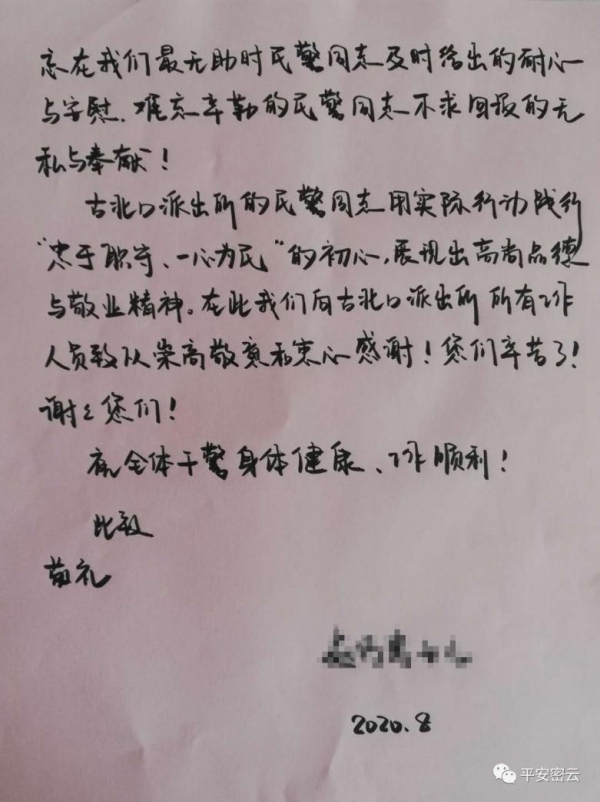 忘在我们最无助时民警同志及时给出的耐心
与安慰、难忘辛勤的民警同志不求回报的无
私与奉献！
古北口派出所的民警同志用实际行动践行
“忠于职守、一心为民”的初心，展现出高尚品德
与敬业精神。在此我们向古北口派出所所有工作
人员致以崇高敬意和衷心感谢！您们辛苦了！
谢谢您们！
祝全体干警身体健康、工作顺利！
此致
敬礼
2020.8
平安密云